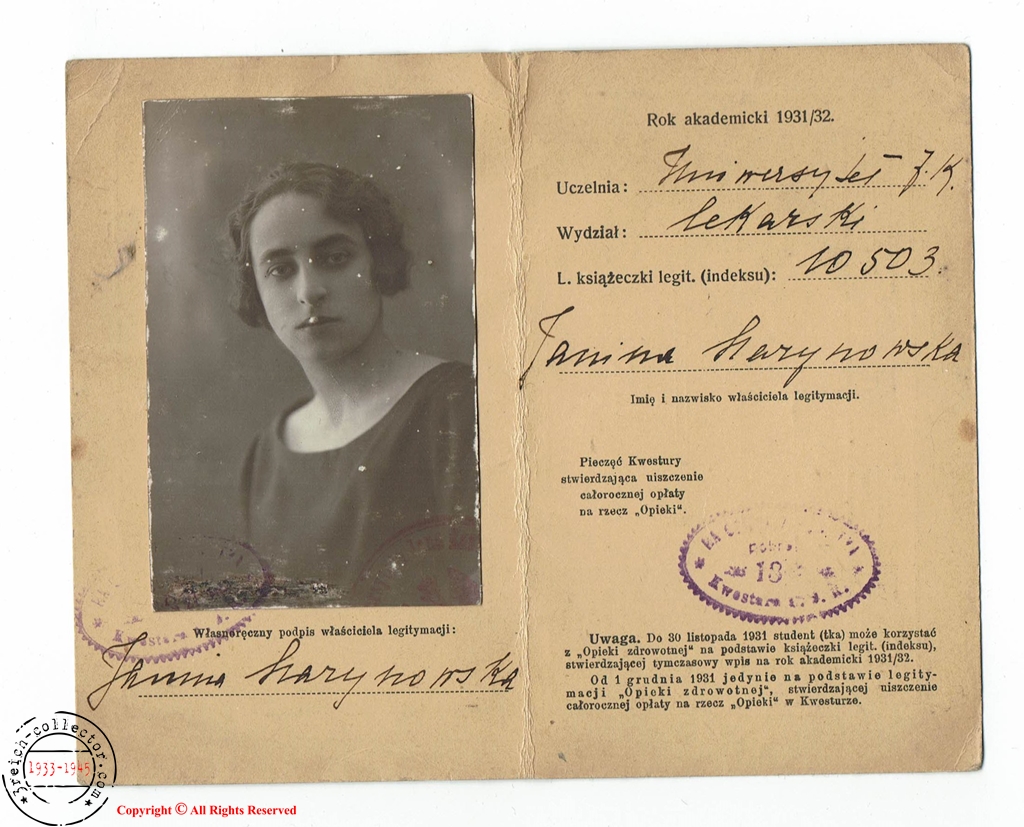 Własnoręczny podpis właściciela legitymacji:
Janina
Rok akademicki 1931/32.
Uczelnia: Uniwersytet J.K.
Wydział: lekarski
L. książeczki legit. (indeksu): 10503
Janina
Imię i nazwisko właściciela legitymacji.
Pieczęć Kwestury
stwierdzająca uiszczenie
całorocznej opłaty
na rzecz „Opieki”.
pobra
13
Kwestura
Kwestura
Uwaga. Do 30 listopada 1931 student (tka) może korzystać
z „Opieki zdrowotnej” na podstawie książeczki legit. (indeksu),
stwierdzającej tymczasowy wpis na rok akademicki 1931/32.
Od 1 grudnia 1931 jedynie na podstawie legity-
macji „Opieki zdrowotnej”, stwierdzającej uiszczenie
całorocznej opłaty na rzecz „Opieki” w Kwesturze.
3reich-collector.com
1933-1945
Copyright © All Rights Reserved